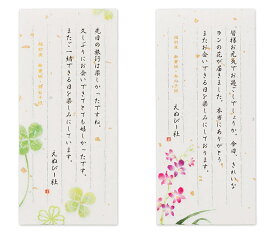 先日の旅行は楽しかったですね。
久しぶりにお会いできてとても嬉しかったです。
またご一緒できる日を楽しみにしています。
えぬびー社
皆様お元気でお過ごしでしょうか。今日、きれいな
ランの花が届きました。本当にありがとう。
またお会いできる日を楽しみにしております。
えぬびー社